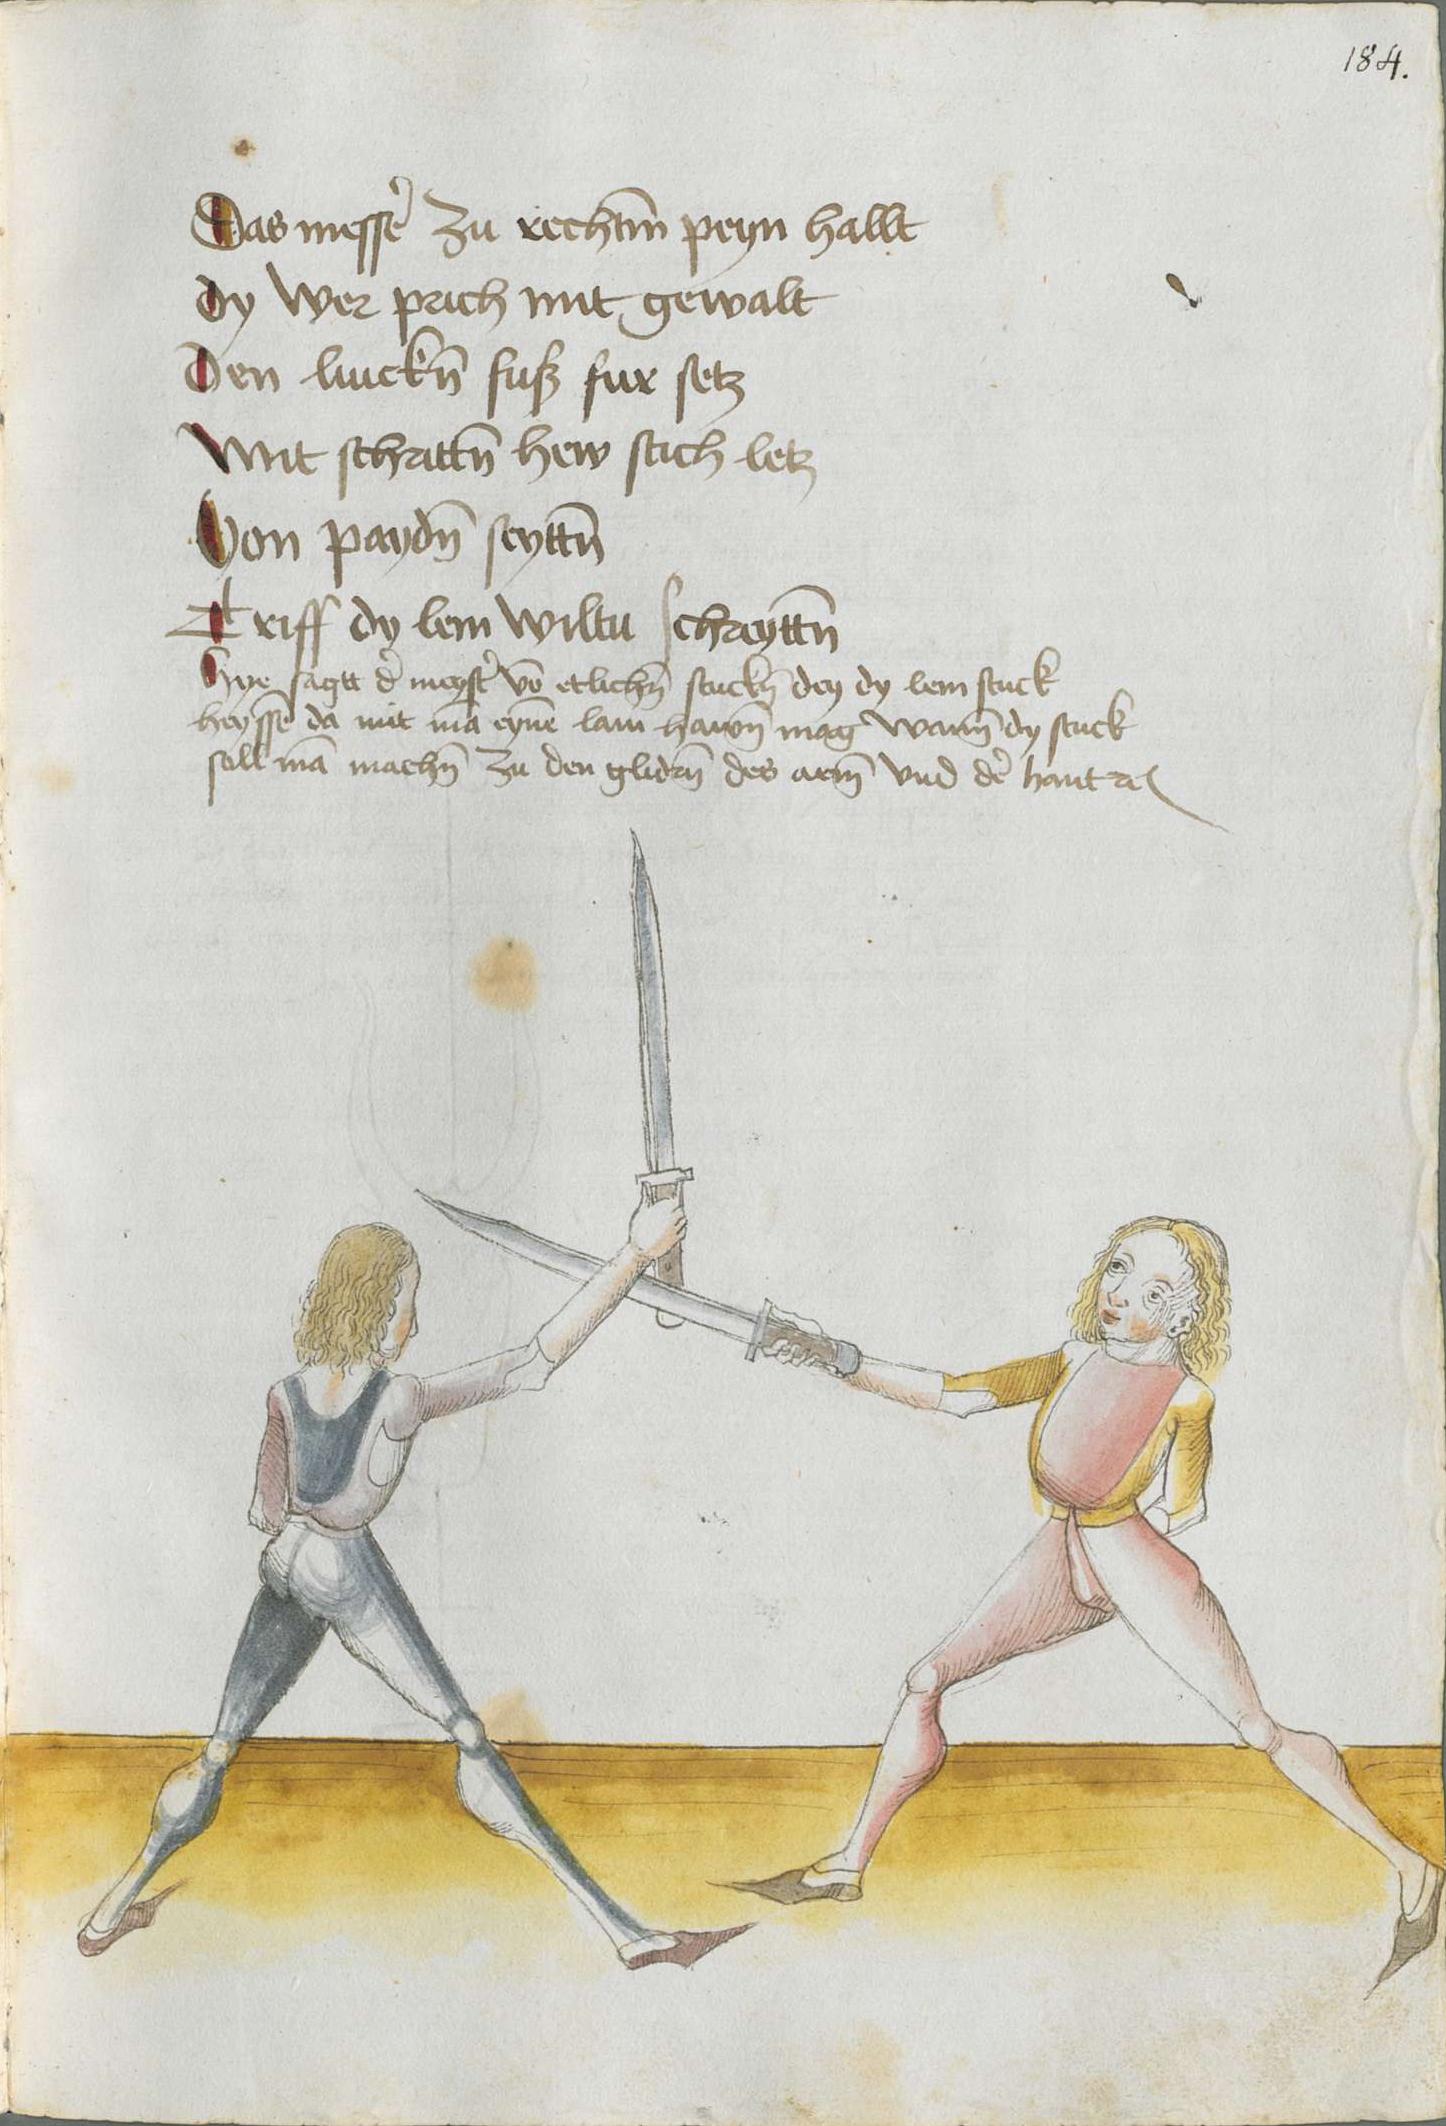 184.
Das messer̄ zu rechtm̄ peyn hallt
dy wer prich mit gewalt
Den linckn̄ fuß fur setz
Mit schrittn̄ hew stich letz
Von paydn̄ seyttn̄
Triff dy lem wiltu schreyttn̄
Hye sagtt d̄ meyst̄ vō etlichn̄ stuckn̄ dey dy lem stuck
heyssē da mit mā eynē lam hawn̄ mag wann̄ dy stuck
soll mā machn̄ zu den glidrn̄ des arm̄ vnd d̄ hant